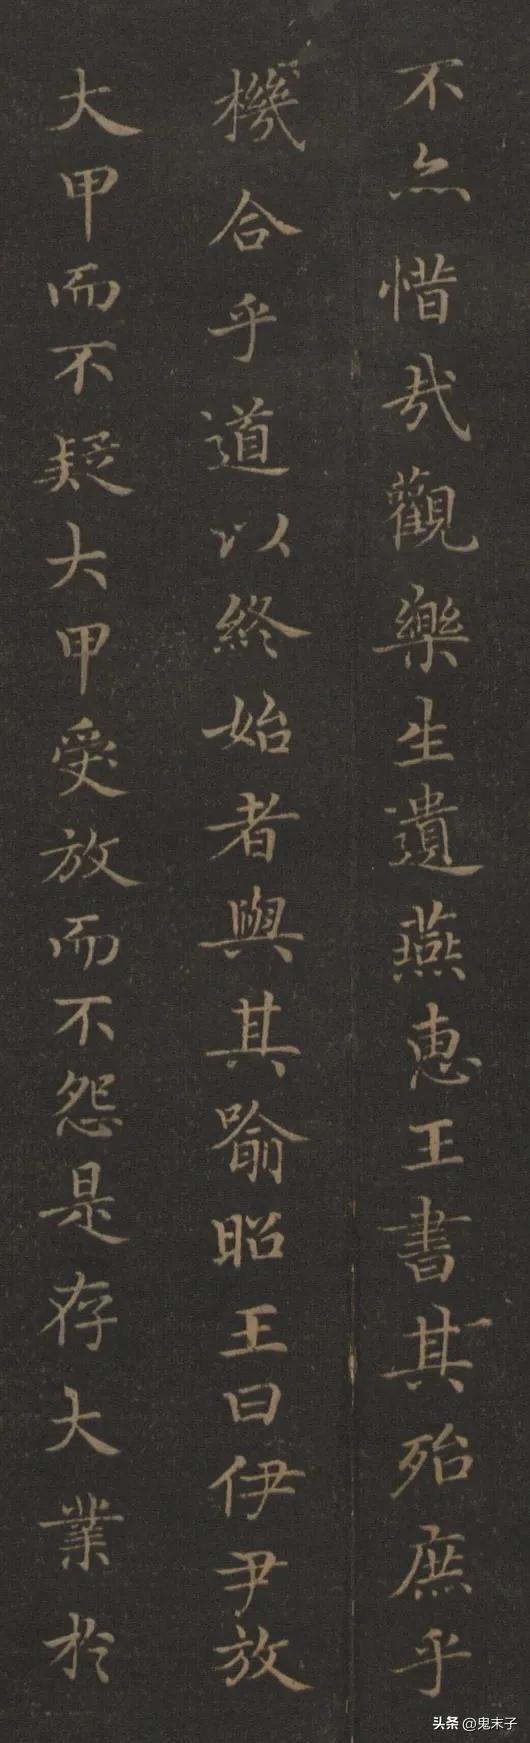 不亦惜哉觀樂生遺燕惠王書其殆庶乎
機合乎道以終始者與其喻昭王曰伊尹放
大甲而不疑大甲受放而不怨是存大業於
头条 @鬼末子